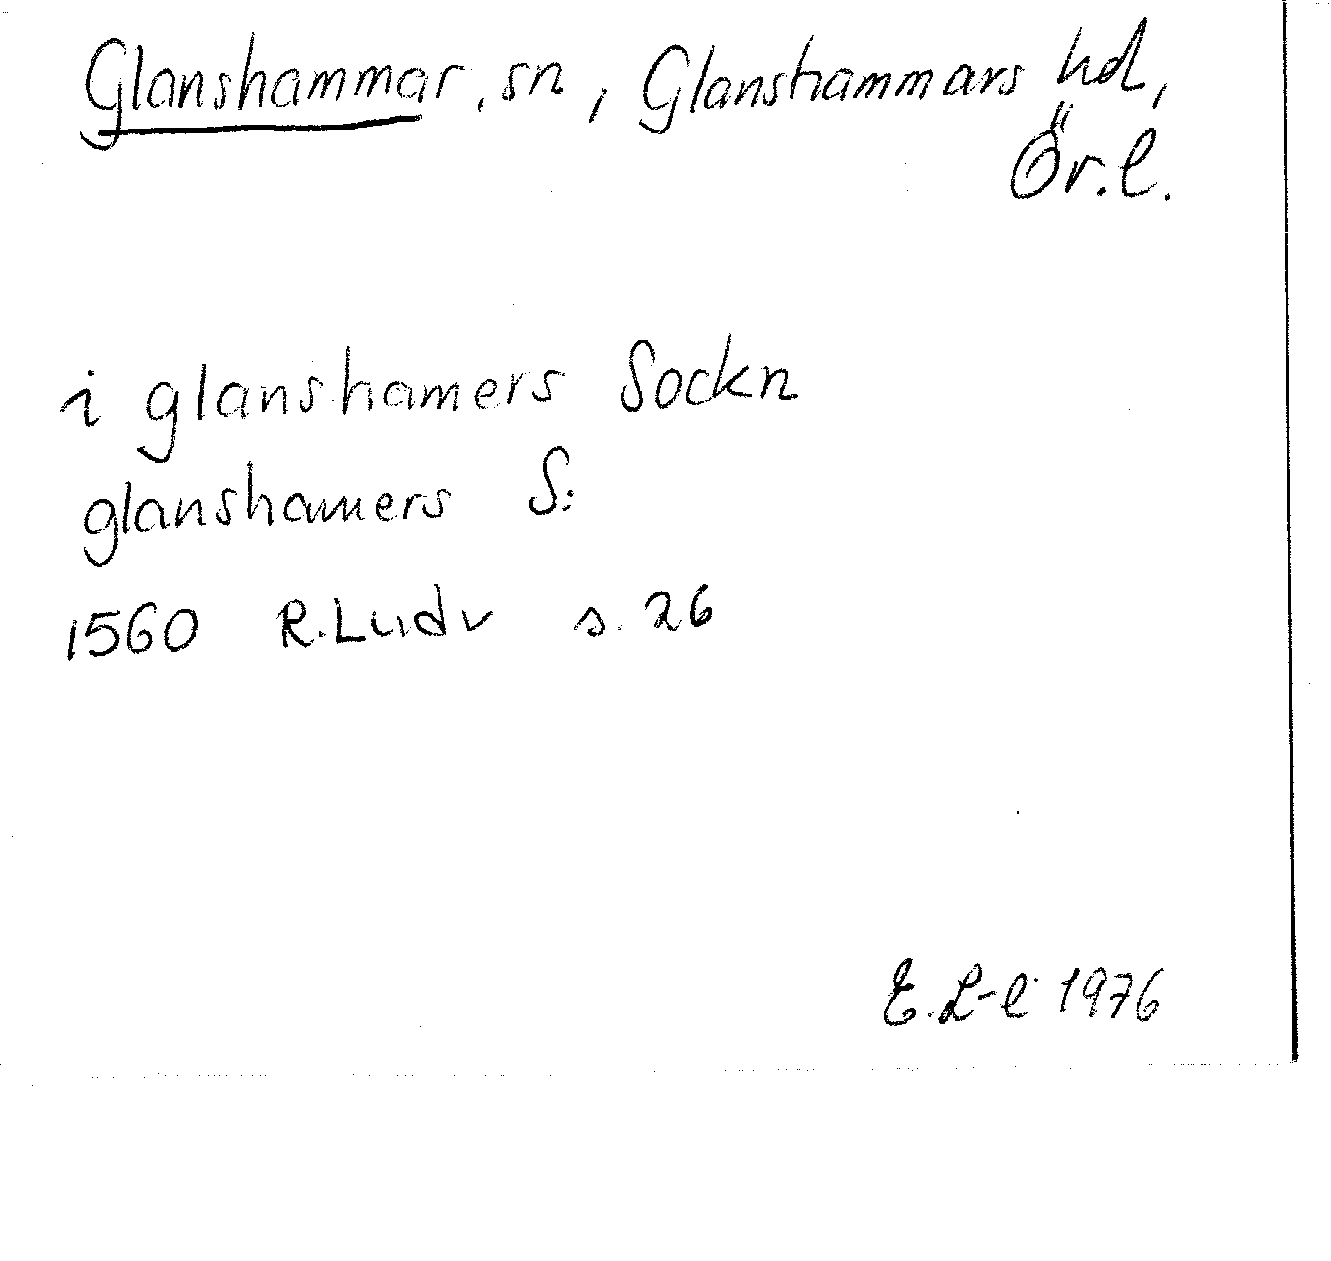 Glanshammar, sn, Glanshammars hd,
Ör.l.
i glanshamers Sockn
glanshamers S:
1560 R.Ludv s. 26
E.L-l 1976